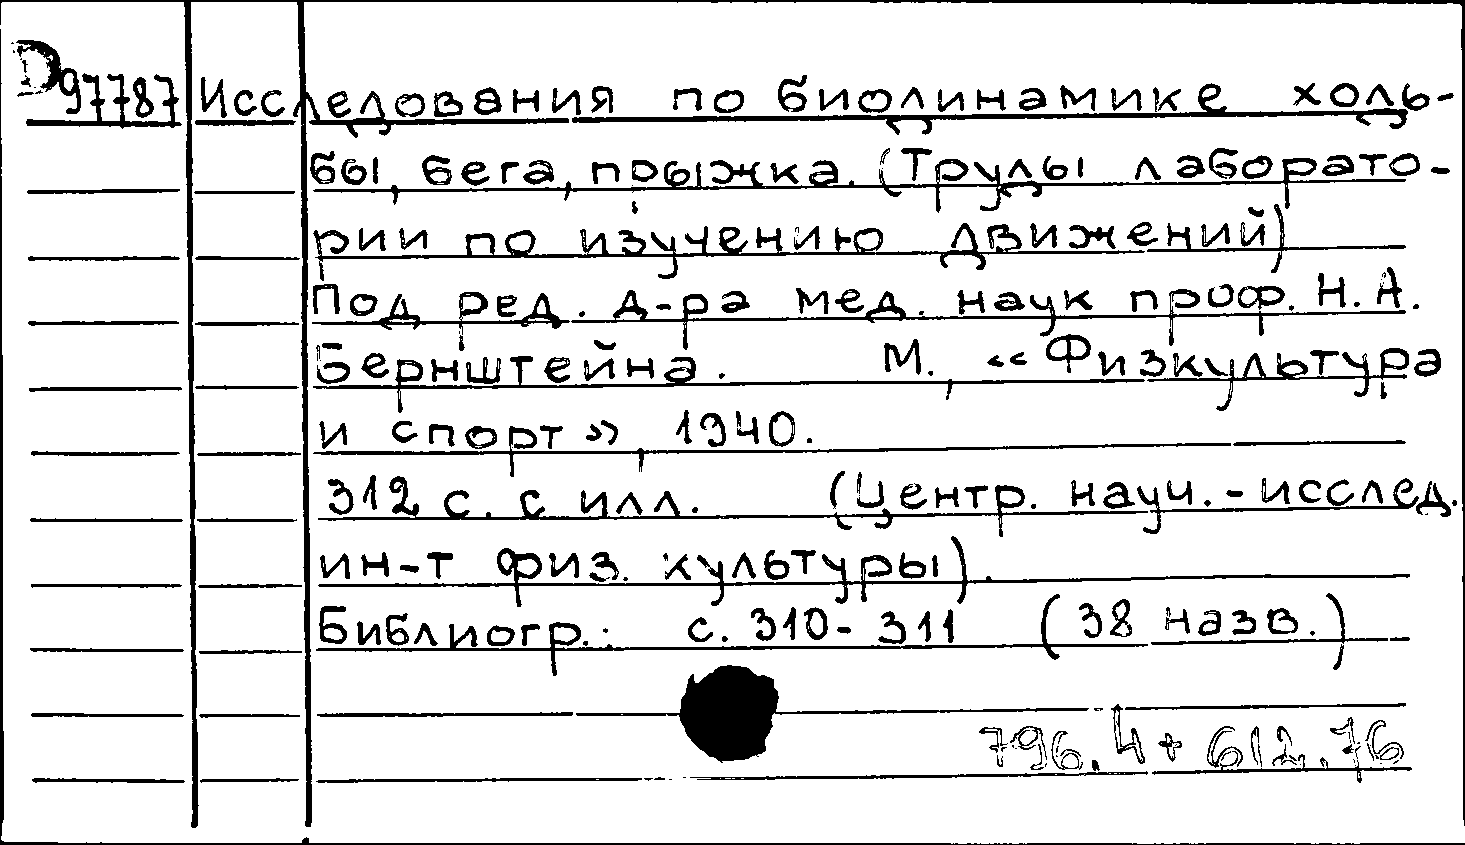 D97787 Исследования по биодинамике ходь-
бы, бега, прыжка. (Труды лаборато-
рии по изучению движений)
Под ред. д-ра мед. наук проф. Н. А.
Бернштейна. М., «Физкультура
и спорт», 1940.
312 с. с илл. (Центр. науч.-исслед.
ин-т физ. культуры).
Библиогр.: с. 310-311 (38 назв.)
796.4+612.76